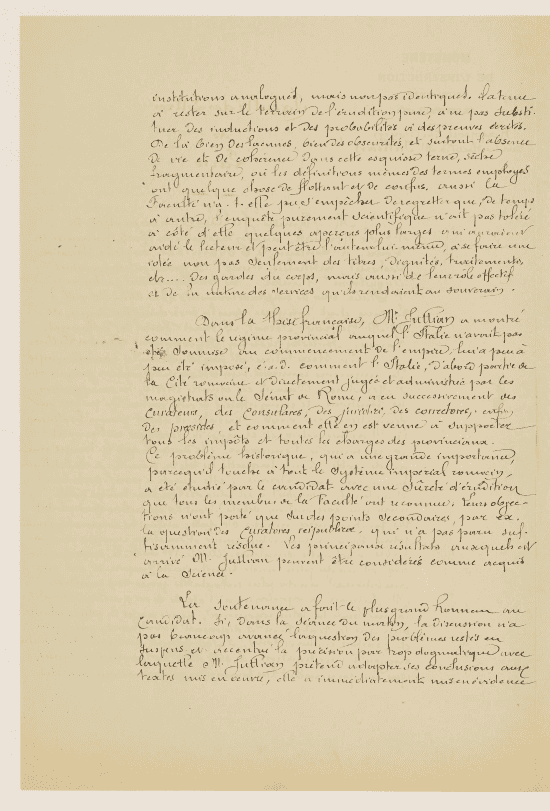 institutions analogues, mais non pas identiques. Il a tenu
à rester sur le terrain de l'érudition pure, à ne pas substi-
tuer des inductions et des probabilités à des preuves écrites.
De là bien des lacunes, bien des obscurités, et surtout l'absence
de vie et de cohérence dans cette esquisse terne, sèche
fragmentaire, où les définitions mêmes des termes employés
ont quelque chose de flottant et de confus. aussi la
Faculté n'a-t-elle pu s'empêcher de regretter que, de temps
à autre, l'enquête purement scientifique n'ait pas toléré
à côté d'elle quelques aperçus plus larges qui auraient
aidé le lecteur et peut être l'auteur lui même, à se faire une
idée non pas seulement des titres, dignités, traitements,
etc.... des gardes du corps, mais aussi de leur rôle effectif
et de la nature des services qu'ils rendaient au souverain.
Dans la thèse française, Mr Jullian a montré
comment le régime provincial auquel l'Italie n'avait pas
été soumise au commencement de l'empire, lui a peu à
peu été imposé, c.à.d. comment l'Italie, d'abord portion de
la Cité romaine et directement jugée et administrée par les
magistrats ou le Sénat de Rome, a eu successivement des
Curateurs, des Consulaires, des juridici, des correctores, enfin
des praesides, et comment elle en est venue à supporter
tous les impôts et toutes les charges des provinciaux.
Ce problème historique, qui a une grande importance,
parcequ'il touche à tout le système impérial romain,
a été étudié par le candidat avec une sûreté d'érudition
que tous les membres de la Faculté ont reconnue; leurs objec-
tions n'ont porté que sur des points secondaires, par ex.
la question des Curatores reipublicae qui n'a pas paru suf-
fisamment résolue. Les principaux résultats auxquels est
arrivé M. Jullian peuvent être considérés comme acquis
à la Science.
La Soutenance a fait le plus grand honneur au
Candidat. Si, dans la séance du matin, la discussion n'a
pas beaucoup avancé la question des problèmes restés en
suspens et a accentué la précision par trop dogmatique avec
laquelle M. Jullian prétend adapter ses conclusions aux
textes mis en oeuvre, elle a immédiatement mis en évidence